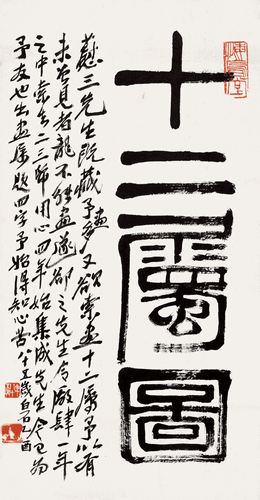 十二屬圖
三先生既藏予畫多又欲索畫十二屬予以有
未曾見者龍不能畫遂卻之先生令廠肆一年
之中二三師用心四年始集成先生今已為
予友也出畫屬題四字予始得知心苦八十五歲白石乙酉